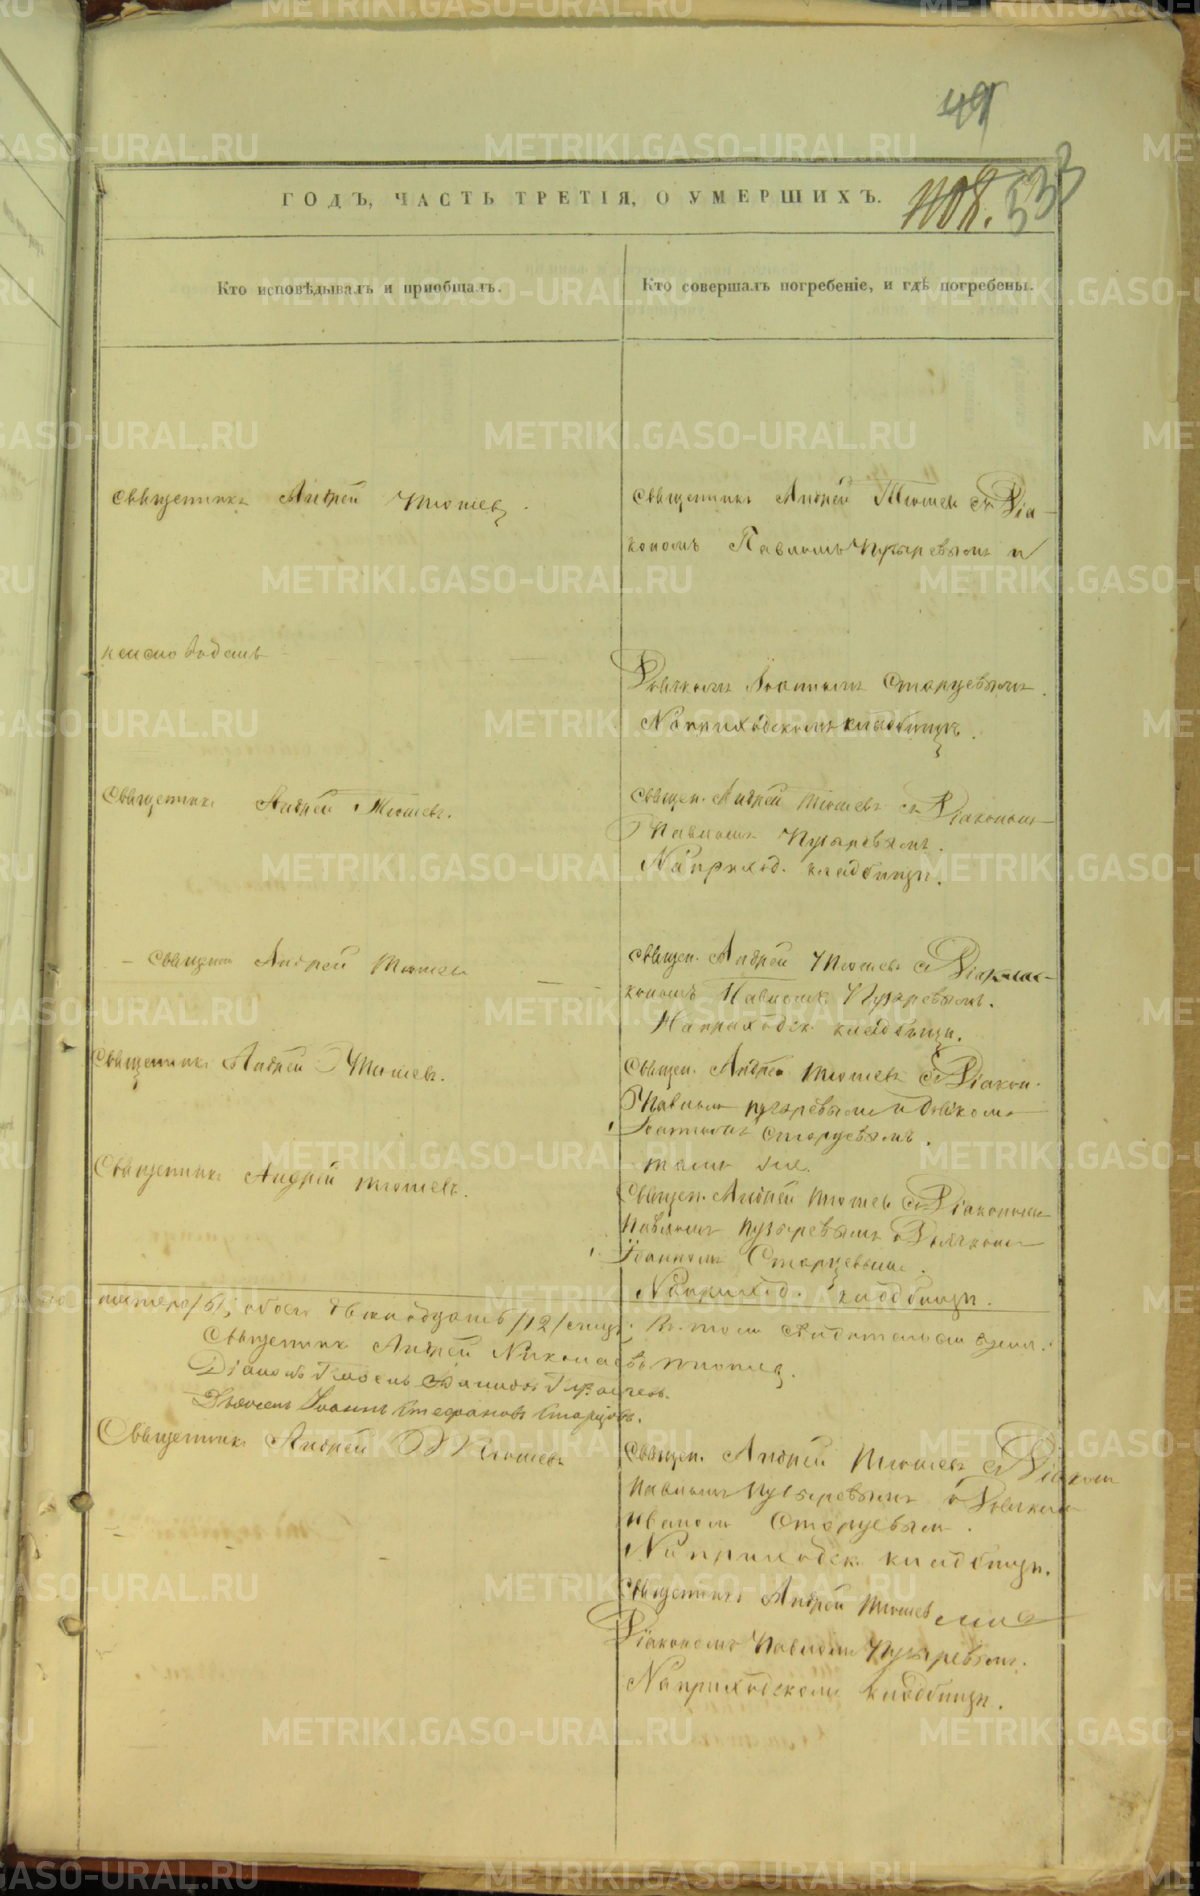 49
ГОДЪ, ЧАСТЬ ТРЕТІЯ, О УМЕРШИХЪ.
533
Кто исповѣдывалъ и пріобщалъ.
Кто совершалъ погребеніе, и гдѣ погребены.
Священникъ Андрей Тюшевъ.
Священникъ Андрей Тюшевъ съ Діа-
кономъ Павломъ Пузыревымъ и
Дьячкомъ Іоанномъ Старцевымъ.
На приходскомъ кладбищѣ.
Священникъ Андрей Тюшевъ.
Священ. Андрей Тюшевъ съ Діакономъ
Павломъ Пузыревымъ.
На приход. кладбищѣ.
Священ Андрей Тюшевъ
Священ. Андрей Тюшевъ съ
кономъ Павломъ Пузыревымъ.
На приходск. кладбищѣ.
Священникъ Андрей Тюшевъ.
Священ. Андрей Тюшевъ съ Діакон.
Павломъ Пузыревымъ и Дьячкомъ
Іоанномъ Старцевымъ.
тамъ же.
Священникъ Андрей Тюшевъ.
Священ. Андрей Тюшевъ съ Діакономъ
Павломъ Пузыревымъ и Дьячкомъ
Іоанномъ Старцевымъ.
На приход. кладбищѣ.
пятеро /5/, обоего двенадцать /12/
Священникъ Андрей Николаевъ Тюшевъ.
Діаконъ Павелъ
Дьячекъ Іоаннъ Стефановъ Старцовъ.
Священникъ Андрей Тюшевъ
Священ. Андрей Тюшевъ съ Діакон
Павломъ Пузыревымъ и Дьячком
Иваномъ Старцевым.
На приходск. кладбищѣ.
Священникъ Андрей Тюшевъ съ
Діакономъ Павломъ Пузыревым.
На приходскомъ кладбищѣ.
METRIKI.GASO-URAL.RU